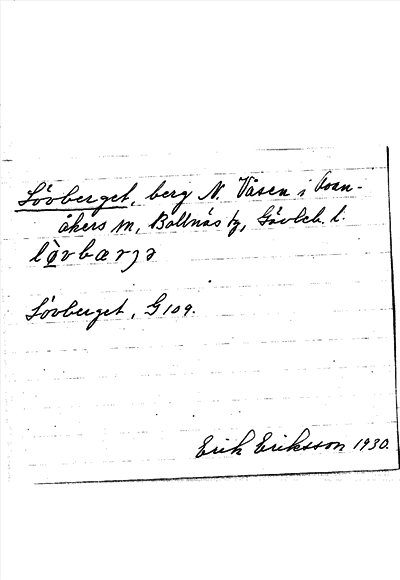 Lövberget, berg N. Våsen i Svan-
åkers sn, Bollnäs tg, Gävleb. l.
lø̀vbærjə
Lövberget, G 109.
Erik Eriksson 1930.